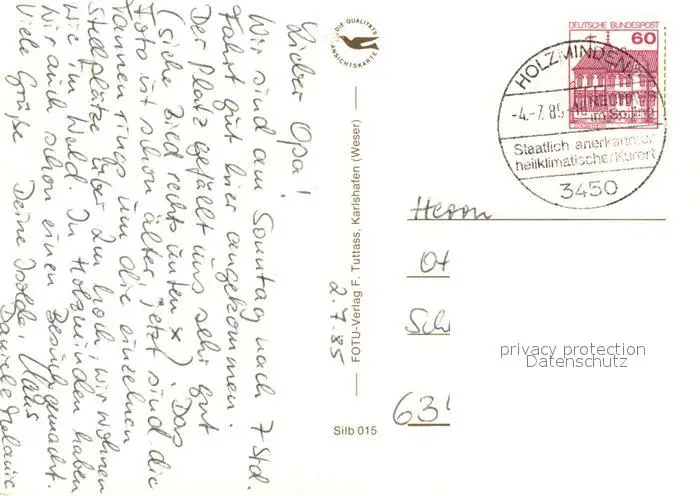 Lieber Opa!
Wir sind am Sonntag nach 7 Std.
Fahrt gut hier angekommen.
Der Platz gefällt uns sehr gut
(siehe Bild rechts unten x). Das
Foto ist schon älter, jetzt sind die
Tannen rings um die einzelnen
Stellplätze über 2m hoch, wir wohnen
wie im Wald. In Holzminden haben
wir auch schon einen Besuch gemacht.
Viele Grüße Deine Isolde, Klaus
Daniela Melanie
2.7.85
DIE QUALITÄTS
ANSICHTSKARTE
FOTU-Verlag F. Tuttass, Karlshafen (Weser)
Silb 015
DEUTSCHE BUNDESPOST
60
HOLZMINDEN
-4.-7.85-
im Solling
Staatlich anerkannter
heilklimatischer Kurort
3450
Herrn
Ot
Sch
634
privacy protection
Datenschutz